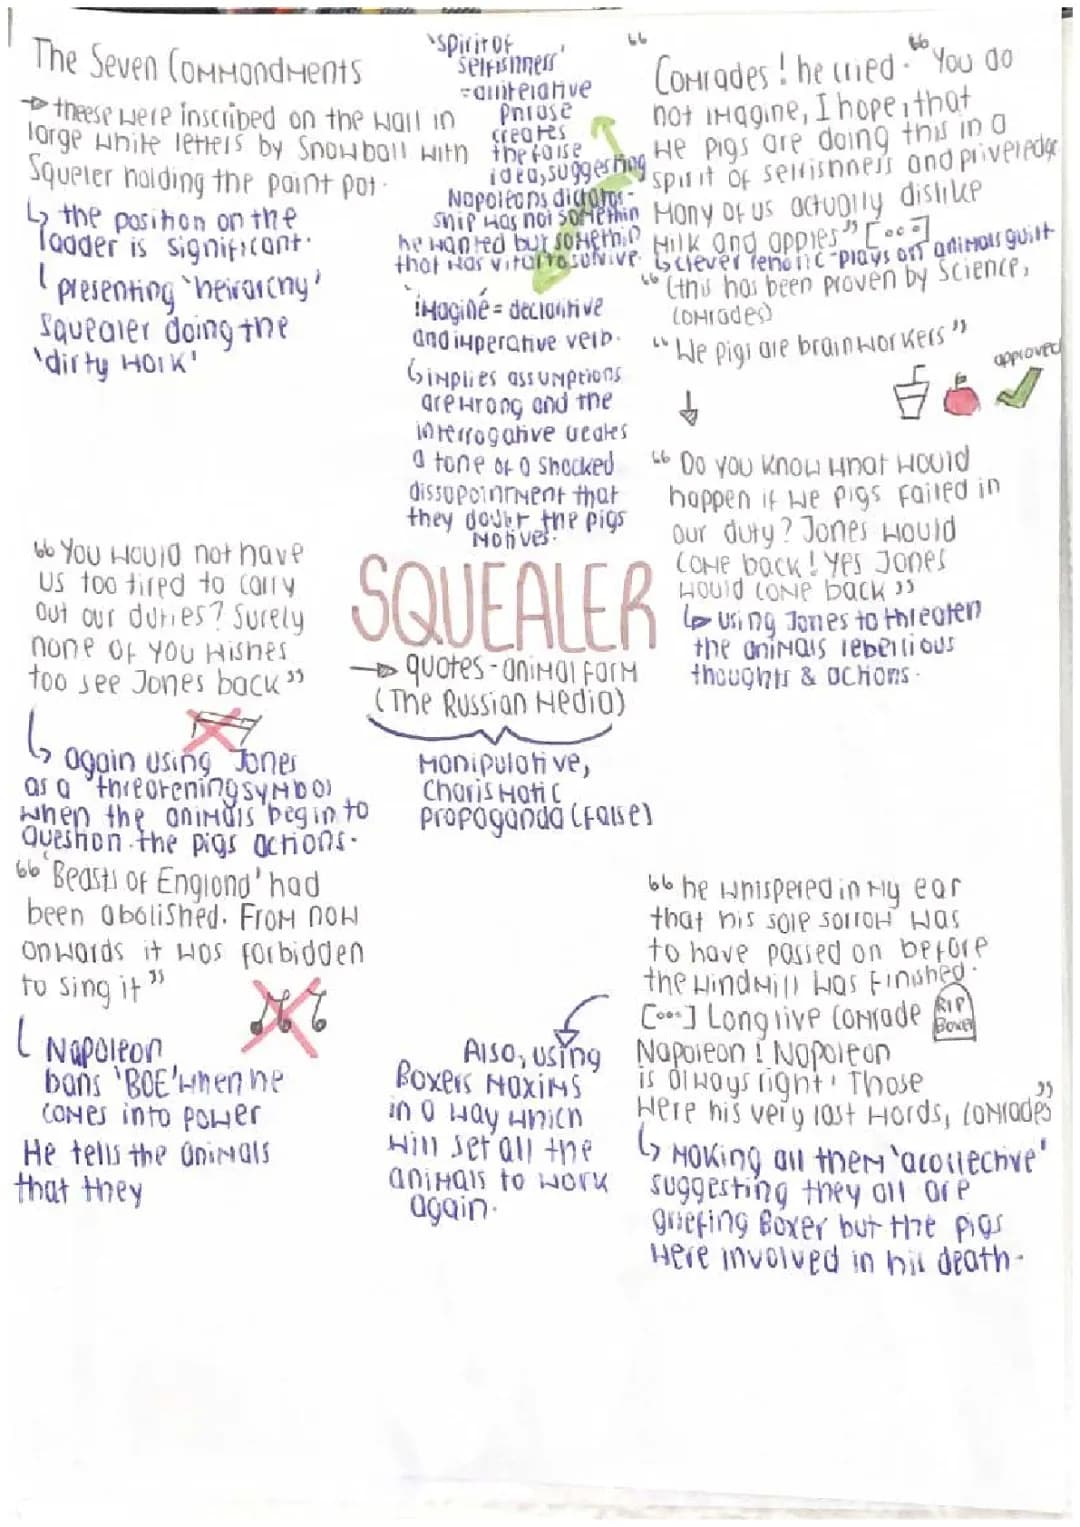 The Seven Commandments
→ theese were inscribed on the wall in
large white letters by Snowball with
Squeler holding the paint pot.
↳ the position on the
ladder is significant.
presenting 'heirarchy'
Squealer doing the
'dirty work'
'spirit of
selfishness'
phrase
creates
the false
idea, suggesting
Napoleons dictator-
ship was not somethin
he wanted but somethin
that was vital to survive.
'imagine' = declaritive
and imperative verb.
↳ implies assumptions
are wrong and the
interrogative creates
a tone of a shocked
dissapointment that
they doubt the pigs
motives.
“
Comrades! he cried. “You do
not imagine, I hope, that
we pigs are doing this in a
spirit of selfishness and priveledge
Many of us actually dislike
milk and apples” [...]
↳ clever rehtoric - plays on animals guilt
“(this has been proven by Science,
comrades)
“We pigs are brainworkers”
approved
“Do you know what would
happen if we pigs failed in
our duty? Jones would
come back! Yes Jones
would come back”
↳ using Jones to threaten
the animals rebellious
thoughts & actions.
“You would not have
us too tired to carry
out our duties? Surely
none of you wishes
too see Jones back”
↳ again using Jones
as a threatening symbol
when the animals begin to
question the pigs actions.
SQUEALER
→ quotes - animal farm
(The Russian Media)
Manipulative,
Charismatic
propaganda (false)
“'Beasts of England' had
been abolished. From now
onwards it was forbidden
to sing it”
Napoleon
bans 'BOE' when he
comes into power
He tells the animals
that they
“he whispered in my ear
that his sole sorrow was
to have passed on before
the windmill was finished.
[...] Long live comrade
RIP
Boxer
Napoleon! Napoleon
is always right. Those
were his very last words, comrades”
↳ Making all them 'a collective'
suggesting they all are
griefing Boxer but the pigs
were involved in his death.
Also, using
Boxers maxims
in a way which
will set all the
animals to work
again.